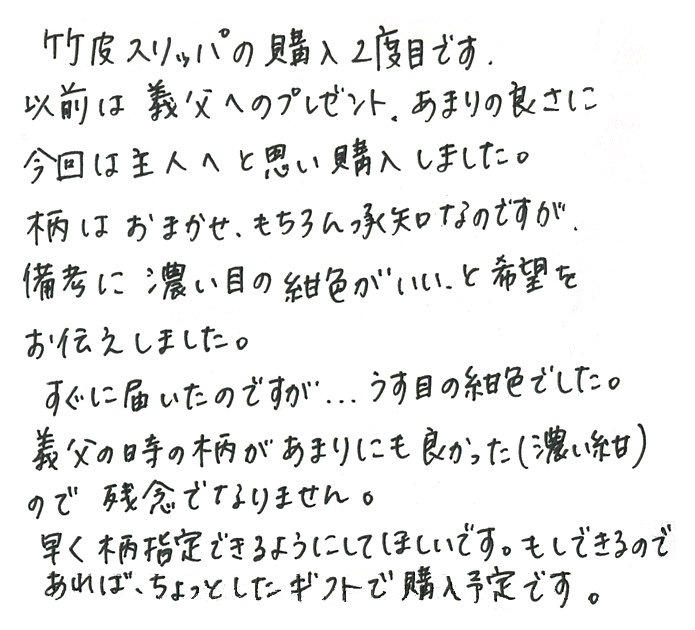 竹皮スリッパの購入2度目です.
以前は義父へのプレゼント、あまりの良さに
今回は主人へと思い購入しました。
柄はおまかせ、もちろん承知なのですが、
備考に濃い目の紺色がいい、と希望を
お伝えしました。
すぐに届いたのですが…うす目の紺色でした。
義父の時の柄があまりにも良かった(濃い紺)
ので残念でなりません。
早く柄指定できるようにしてほしいです。もしできるので
あれば、ちょっとしたギフトで購入予定です。